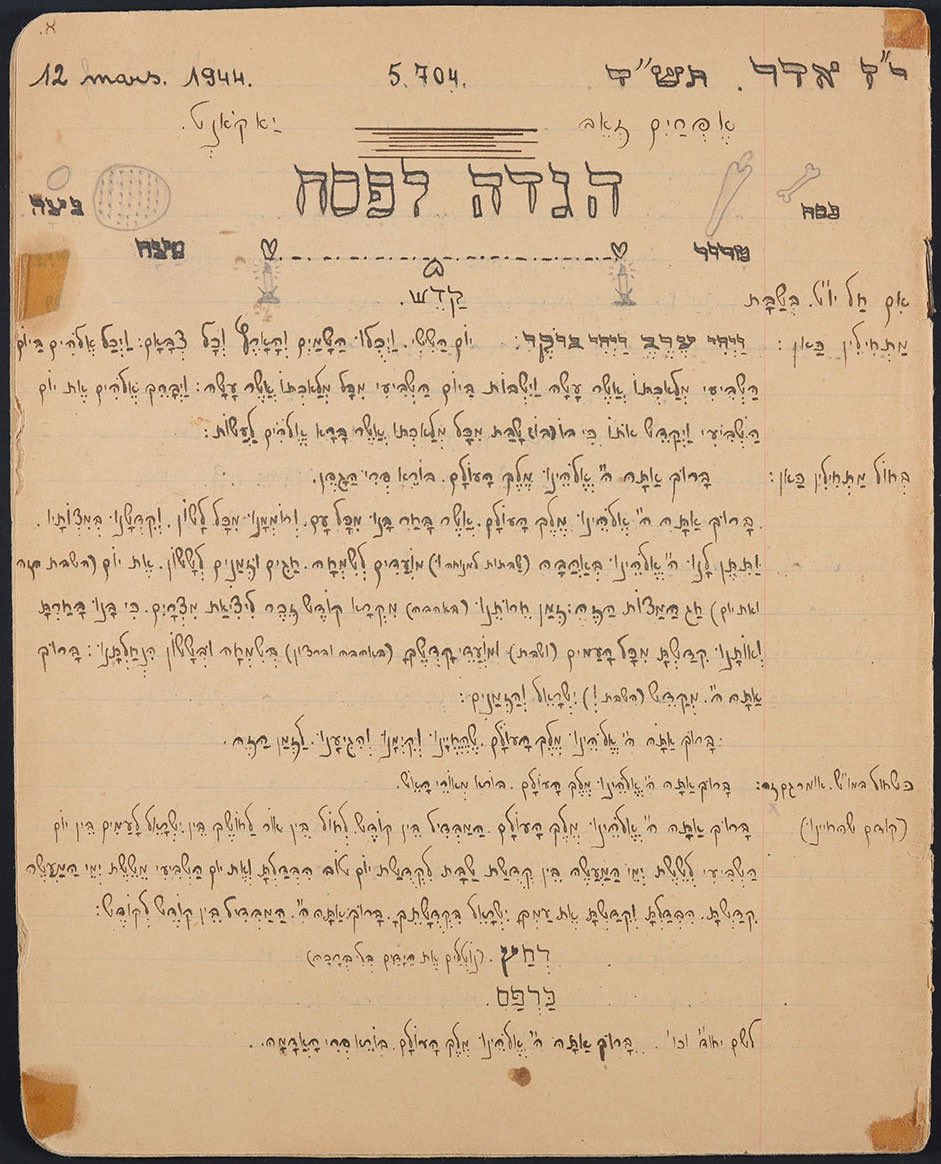 א.
12 mars. 1944. 5.704. י"ז אדר. תש"ד
אֶפְרַיִם זְאֵב יַאקאָנְט.
הגדה לפסח
פסח ביצה
מרור מצה
קַדֵשׁ.
אִם חַל יו"ט. בְּשַׁבָּת
מַתְחִילִין כַּאן: וַיְהִי עֶרֶב וַיְהִי בֹקֶר: יוֹם הַשִׁשִׁי. וַיְכֻלוּ הַשָׁמַיִם וְהָאָרֶץ וְכָל צְבָאָם: וַיְכַל אֱלֹהִים בַּיוֹם
הַשְׁבִיעִי מְלַאכְתוֹ אֲשֶׁר עָשָׂה וַיִשְׁבּוֹת בַּיוֹם הַשְׁבִיעִי מִכָּל מְלַאכְתוֹ אֲשֶׁר עָשָׂה: וַיְבָרֵךְ אֱלֹהִים אֶת יוֹם
הַשְׁבִיעִי וַיְקַדֵשׁ אוֹתוֹ כִּי בוֹ שָׁבַת מִכָּל מְלַאכְתוֹ אֲשֶׁר בָּרָא אֱלֹהִים לַעֲשׂוֹת:
בְּחוֹל מַתְחִילִין כַּאן: בָּרוּךְ אַתָּה ה" אֱלֹהֵינוּ מֶלֶךְ הָעוֹלָם. בּוֹרֵא פְּרִי הַגֶּפֶן.
בָּרוּךְ אַתָּה ה" אֱלֹהֵינוּ מֶלֶךְ הָעוֹלָם. אֲשֶׁר בָּחַר בָּנוּ מִכָּל עָם. וְרוֹמְמָנוּ מִכָּל לָשׁוֹן. וְקִדְשָׁנוּ בְּמִצְוֹתָיו.
וַתִּתֶּן לָנוּ ה" אֱלֹהֵינוּ בְּאַהֲבָה (שבתות למנוחה ו) מוֹעֲדִים לְשִׂמְחָה. חַגִים וּזְמַנִים לְשָׂשׂוֹן. אֶת יוֹם (השבת הזה
ואת יום) חַג הַמַצּוֹת הַזֶה: זְמַן חֵרוּתֵנוּ (באהבה) מִקְרָא קוֹדֶשׁ זֵכֶר לִיצִיאַת מִצְרָיִם. כִּי בָנוּ בָחַרְתָּ
וְאוֹתָנוּ קִדַשְׁתָּ מִכָּל הָעַמִים (ושבת) וּמוֹעֲדֵי קָדְשֶׁךָ (באהבה וברצון) בְּשִׂמְחָה וּבְשָׂשׂוֹן הִנְחַלְתָּנוּ: בָּרוּךְ
אַתָּה ה". מְקַדֵשׁ (השבת ו) יִשְׂרָאֵל וְהַזְמַנִים:
בָּרוּךְ אַתָּה ה" אֱלֹהֵינוּ מֶלֶךְ הָעוֹלָם. שֶׁהֶחֱיָנוּ וְקִיְמָנוּ וְהִגִיעָנוּ. לַזְמַן הַזֶה.
כשחול במו"ש. אומר גם זה: בָּרוּךְ אַתָּה ה" אֱלֹהֵינוּ מֶלֶךְ הָעוֹלָם. בּוֹרֵא מְאוֹרֵי הָאֵשׁ.
(קודם שהחיינו) בָּרוּךְ אַתָּה ה" אֱלֹהֵינוּ מֶלֶךְ הָעוֹלָם. הַמַבְדִיל בֵּין קוֹדֶשׁ לְחוֹל בֵּין אוֹר לַחוֹשֶׁךְ בֵּין יִשְׂרָאֵל לָעַמִים בֵּין יוֹם
הַשְׁבִיעִי לְשֵׁשֶׁת יְמֵי הַמַעֲשֶׂה בֵּין קְדֻשַׁת שַׁבָּת לִקְדֻשַׁת יוֹם טוֹב הִבְדַלְתָּ וְאֶת יוֹם הַשְׁבִיעִי מִשֵׁשֶׁת יְמֵי הַמַעֲשֶׂה
קִדַשְׁתָּ. הִבְדַלְתָּ וְקִדַשְׁתָּ אֶת עַמְךָ יִשְׂרָאֵל בִּקְדֻשָׁתֶךָ. בָּרוּךְ אַתָּה ה". הַמַבְדִיל בֵּין קוֹדֶשׁ לְקוֹדֶשׁ:
רְחַץ. (נוֹטְלִים אֶת הַיָדַיִם בְּלִי בְּרָכָה)
כַּרְפַּס.
לשם יחוד" וכו'. בָּרוּךְ אַתָּה ה" אֱלֹהֵינוּ מֶלֶךְ הָעוֹלָם. בּוֹרֵא פְּרִי הָאֲדָמָה.